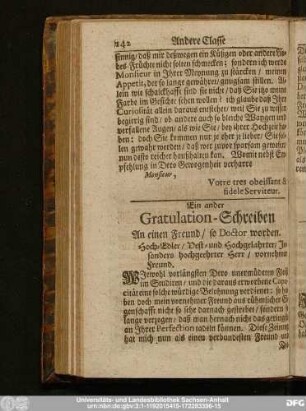 242 Andere Classe
sinnig / daß mir deßwegen ein Küßgen oder andere
bes Früchte nicht solten schmecken; sondern ich werde
Monsieur in Jhrer Meynung zu stärcken / meinen
Appetit, der so lange gewähret / gnugsam stillen.
lein wie schalckhafft sind sie nicht / daß Sie itzo meine
Farbe im Gesichte sehen wollen? ich glaube daß Jhr
Curiosität allein daraus entstehet / weil Sie zu wissen
begierig sind; ob andere auch so bleiche Wangen und
verfallene Augen / als wie Sie / bey ihrer Hochzeit
ben: doch Sie kommen nur je eher je lieber / Sie
len gewahr werden / daß wer zuvor sparsam gewesen
nun desto reicher haushalten kan. Womit nebst
pfehlung in Dero Gewogenheit verharre
Monsieur,
Votre tres obeissant &
fidele Serviteur.
Ein ander
Gratulation-Schreiben
An einen Freund / so Doctor worden.
Hoch-Edler / Vest- und Hochgelahrter / Jn
sonders hochgeehrter Herr / vornehmer
Freund,
Wiewohl vorlängsten Dero unermüdeten Fleiß
im Studiren / und die daraus erworbene Capa-
cität eine solche würdige Belohnung verdienet; so
ben doch mein vornehmer Freund aus rühmlicher
genschafft nicht so sehr darnach gestrebet / sondern
lange verzogen; daß man hernach nicht das geringste
an Jhrer Perfection tadeln können. Diese Zeitung
hat mich / nun als einen verbundesten Freund und
Universitäts- und Landesbibliothek Sachsen-Anhalt
urn:nbn:de:gbv:3:1-1192015415-172283396-15